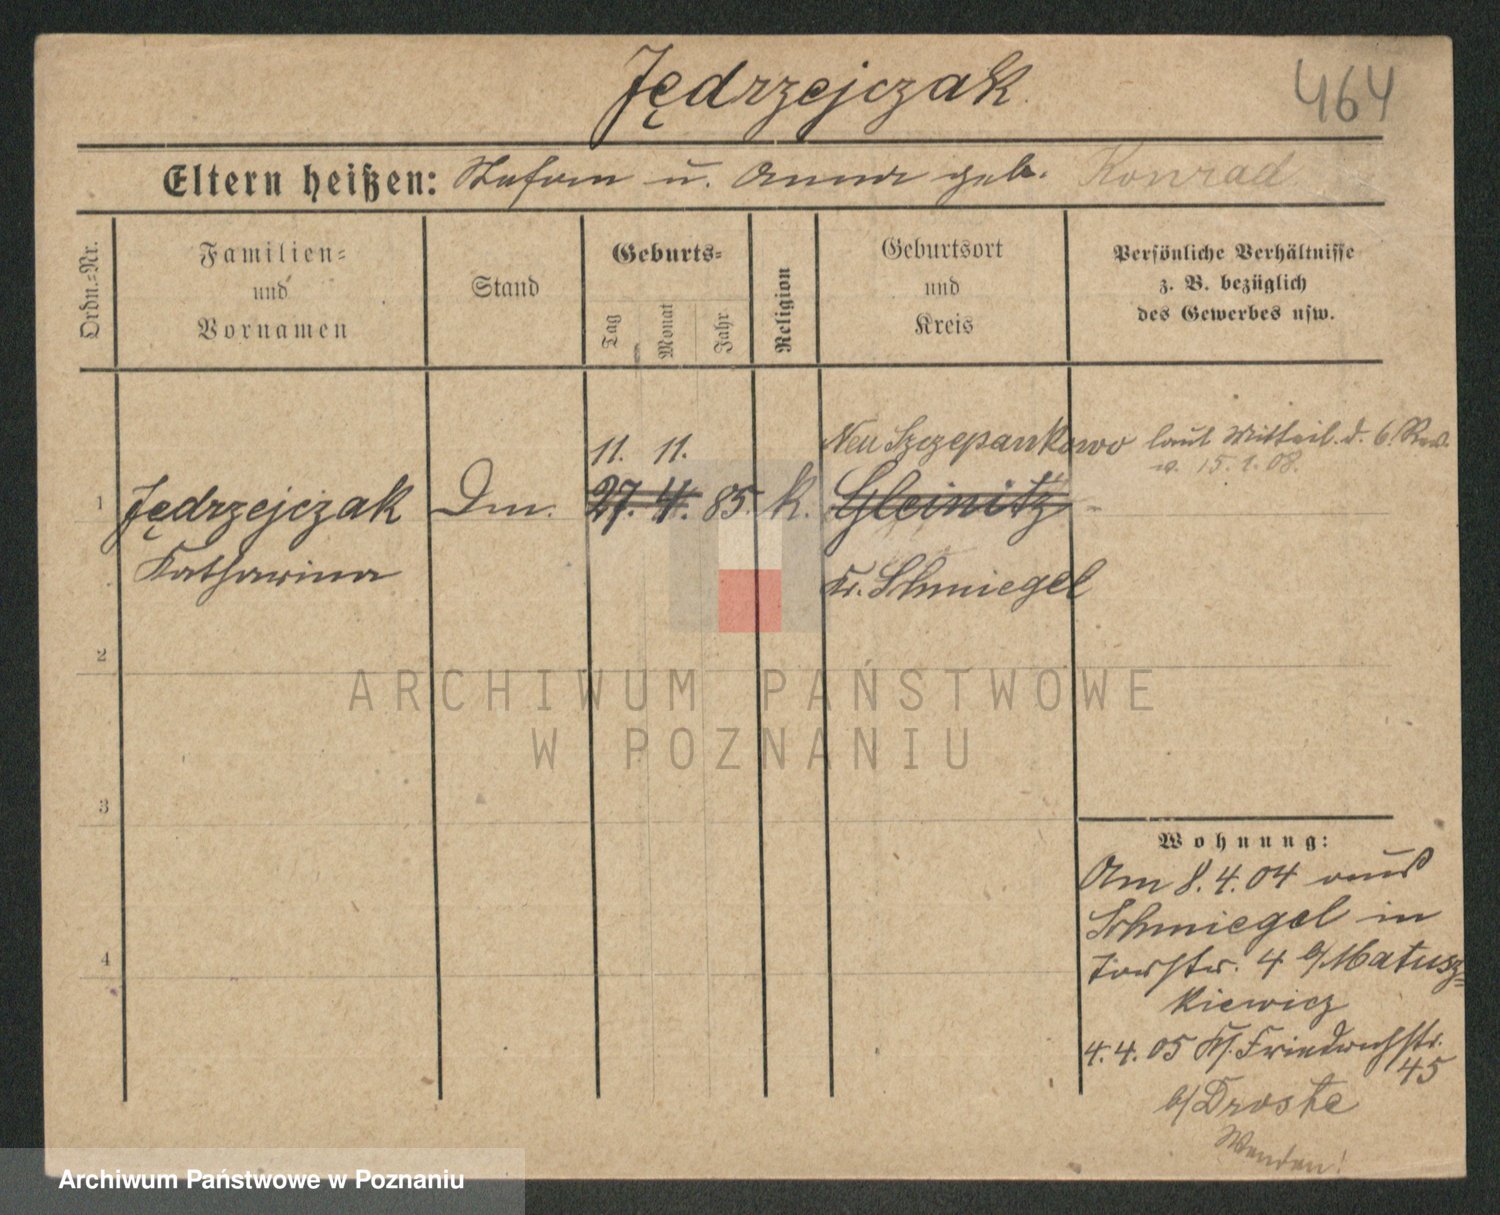 Jędrzejczak
464
Eltern heißen: Stefan u. Anna geb. Konrad
Ordn.-Nr.
Familien-
und
Vornamen
Stand
Geburts-
Tag
Monat
Jahr
Religion
Geburtsort
und
Kreis
Persönliche Verhältnisse
z. B. bezüglich
des Gewerbes usw.
11. 11. Neu Szczepankowo laut Mitteil. d. 6. Rev.
v. 15.1.08.
1 Jędrzejczak Dm. 27. 4. 85. k. Gleinitz
Katharina Kr. Schmiegel
2
3
4
Wohnung:
Am 8.4.04 aus
Schmiegel in
Torstr. 4 b/Matusz=
kiewicz
4.4.05 Friedrichstr.
45
b/Droste
Wenden!
ARCHIWUM PAŃSTWOWE
W POZNANIU
Archiwum Państwowe w Poznaniu